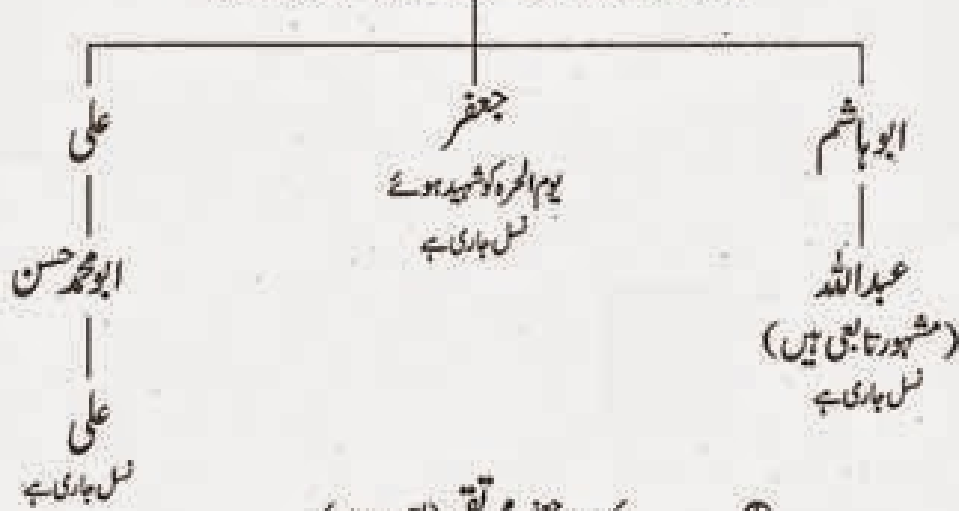 ابو ہاشم
عبداللہ
(مشہور تابعی ہیں)
نسل جاری ہے
جعفر
یوم الحرہ کو شہید ہوئے
نسل جاری ہے
علی
ابو محمد حسن
علی
نسل جاری ہے